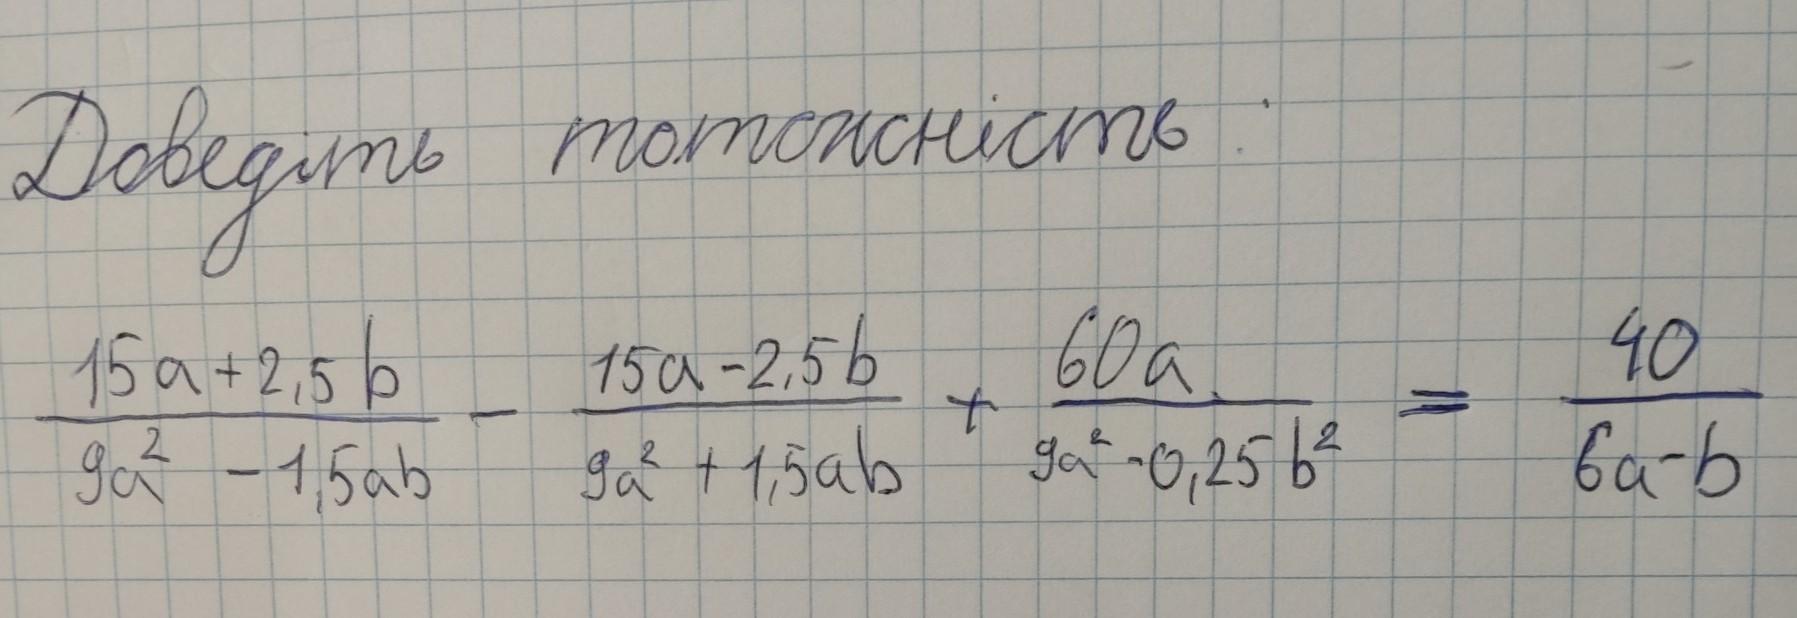 Доведіть тотожність:
15a+2,5b / 9a² - 1,5ab - 15a-2,5b / 9a² + 1,5ab + 60a / 9a² - 0,25b² = 40 / 6a-b